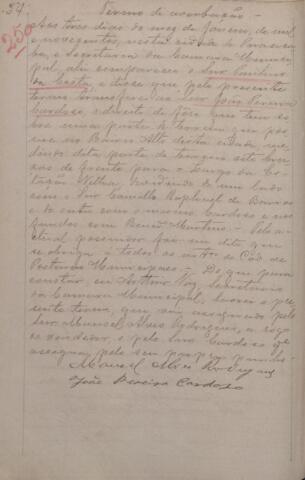 54.
Termo de averbação —
250
Aos tres dias do mez de Janeiro, de mil
e novecentos, nesta cidade de Piracica-
ba, e Secretaria da Camara Munici-
pal, ahi compareceu o Snr
da Costa, e disse que pelo presente
termo transferia ao Snr João Pereira
Cardoso, o direito de fôro que tem so-
bre uma parte de terreno que pos-
sue no Bairro Alto desta cidade, me-
dindo dita parte de terreno sete bra-
ças de frente para o Largo da Es-
tação Velha, dividindo de um lado
com o Snr Camillo Raphael de Barros
e de outro com o mesmo Cardoso e nos
fundos com Martins. Pelo a-
ctual possuidor foi me dito que
se obriga a todos os do Cod. de
Posturas Municipaes. — Do que para
constar, eu Arthur Vaz, Secretario
da Camara Municipal, lavrei o pre-
sente termo, que vai assignado pelo
Snr Manoel Alves Rodrigues, a rogo
do vendedor, e pelo Snr Cardoso que
assigna pelo seu proprio punho.
Manoel Alves Rodrigues
João Pereira Cardoso